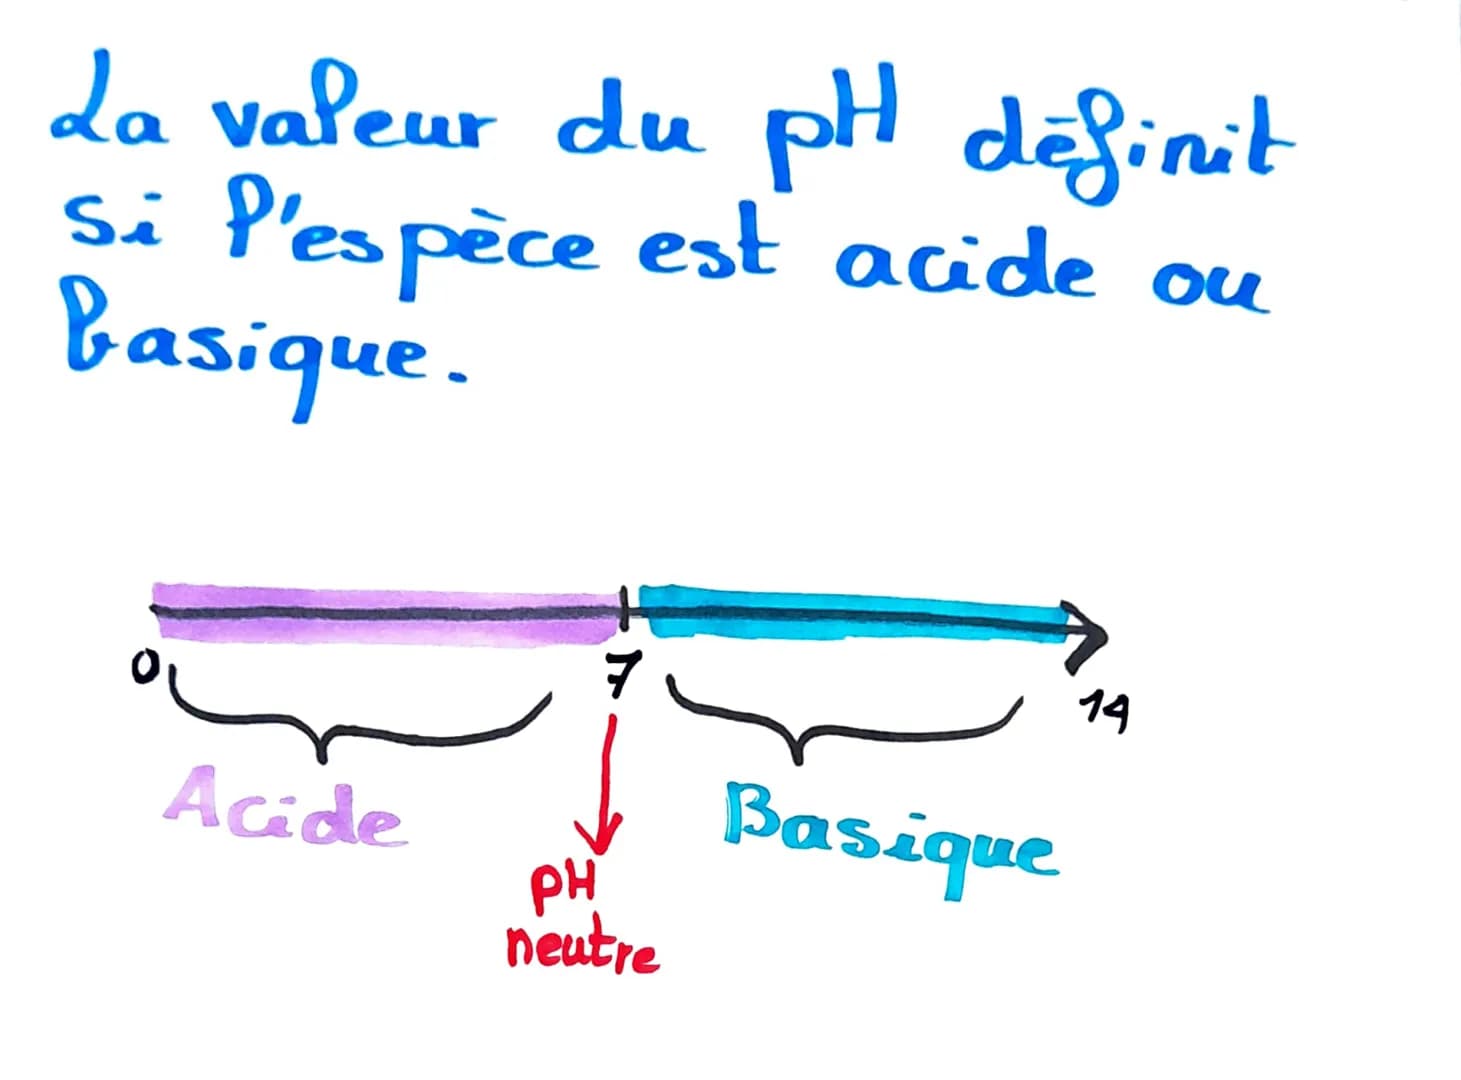 La valeur du pH définit
si l'espèce est acide ou
basique.
0 7 14
Acide Basique
pH
neutre